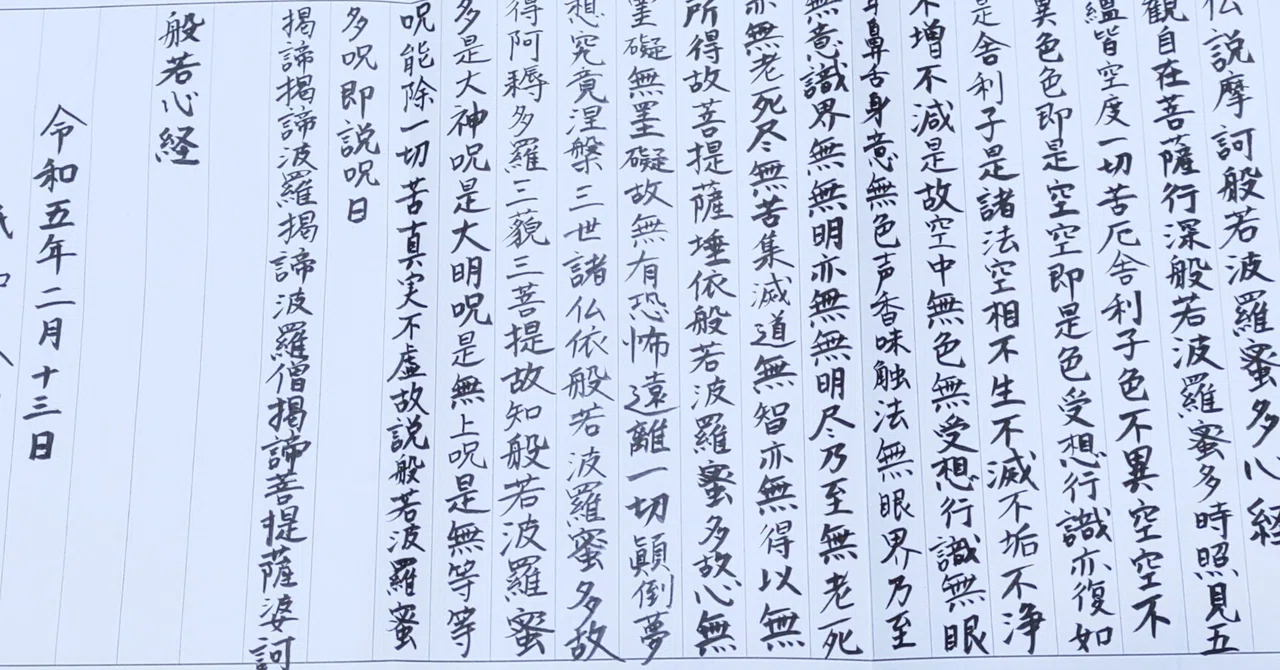 仏説摩訶般若波羅蜜多心経
観自在菩薩行深般若波羅蜜多時照見五
蘊皆空度一切苦厄舎利子色不異空空不
異色色即是空空即是色受想行識亦復如
是舎利子是諸法空相不生不滅不垢不浄
不増不減是故空中無色無受想行識無眼
耳鼻舌身意無色声香味触法無眼界乃至
無意識界無無明亦無無明尽乃至無老死
亦無老死尽無苦集滅道無智亦無得以無
所得故菩提薩埵依般若波羅蜜多故心無
罣礙無罣礙故無有恐怖遠離一切顛倒夢
想究竟涅槃三世諸仏依般若波羅蜜多故
得阿耨多羅三藐三菩提故知般若波羅蜜
多是大神呪是大明呪是無上呪是無等等
呪能除一切苦真実不虚故説般若波羅蜜
多呪即説呪日
掲諦掲諦波羅掲諦波羅僧掲諦菩提薩婆訶
般若心経
令和五年二月十三日